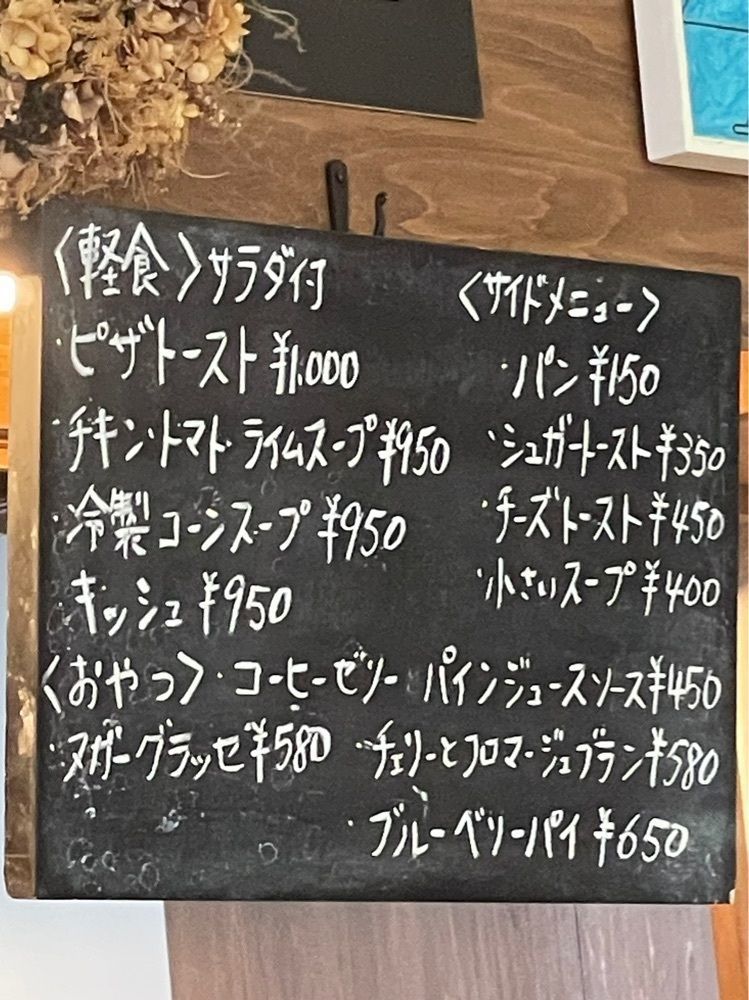 〈軽食〉サラダ付
・ピザトースト ¥1.000
・チキン・トマト ライムスープ ¥950
・冷製コーンスープ ¥950
・キッシュ ¥950
〈サイドメニュー〉
・パン ¥150
・シュガートースト ¥350
・チーズトースト ¥450
・小さいスープ ¥400
〈おやつ〉・コーヒーゼリー パインジュースソース ¥450
・ヌガーグラッセ ¥580 ・チェリーとフロマージュブラン ¥580
・ブルーベリーパイ ¥650